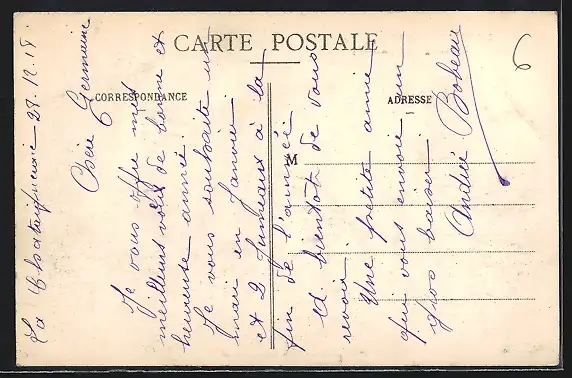 CARTE POSTALE
CORRESPONDANCE
ADRESSE
M
6
La Chataigneraie 29.12.18
Chère Germaine
Je vous offre mes
meilleurs vœux de bonne et
heureuse année.
Je vous souhaite un
mari en Janvier
et 2 Jumeaux à la
fin de l'année
et bientôt de vous
revoir
Une petite amie
qui vous envoie un
gros baiser
Andrée Bobeau